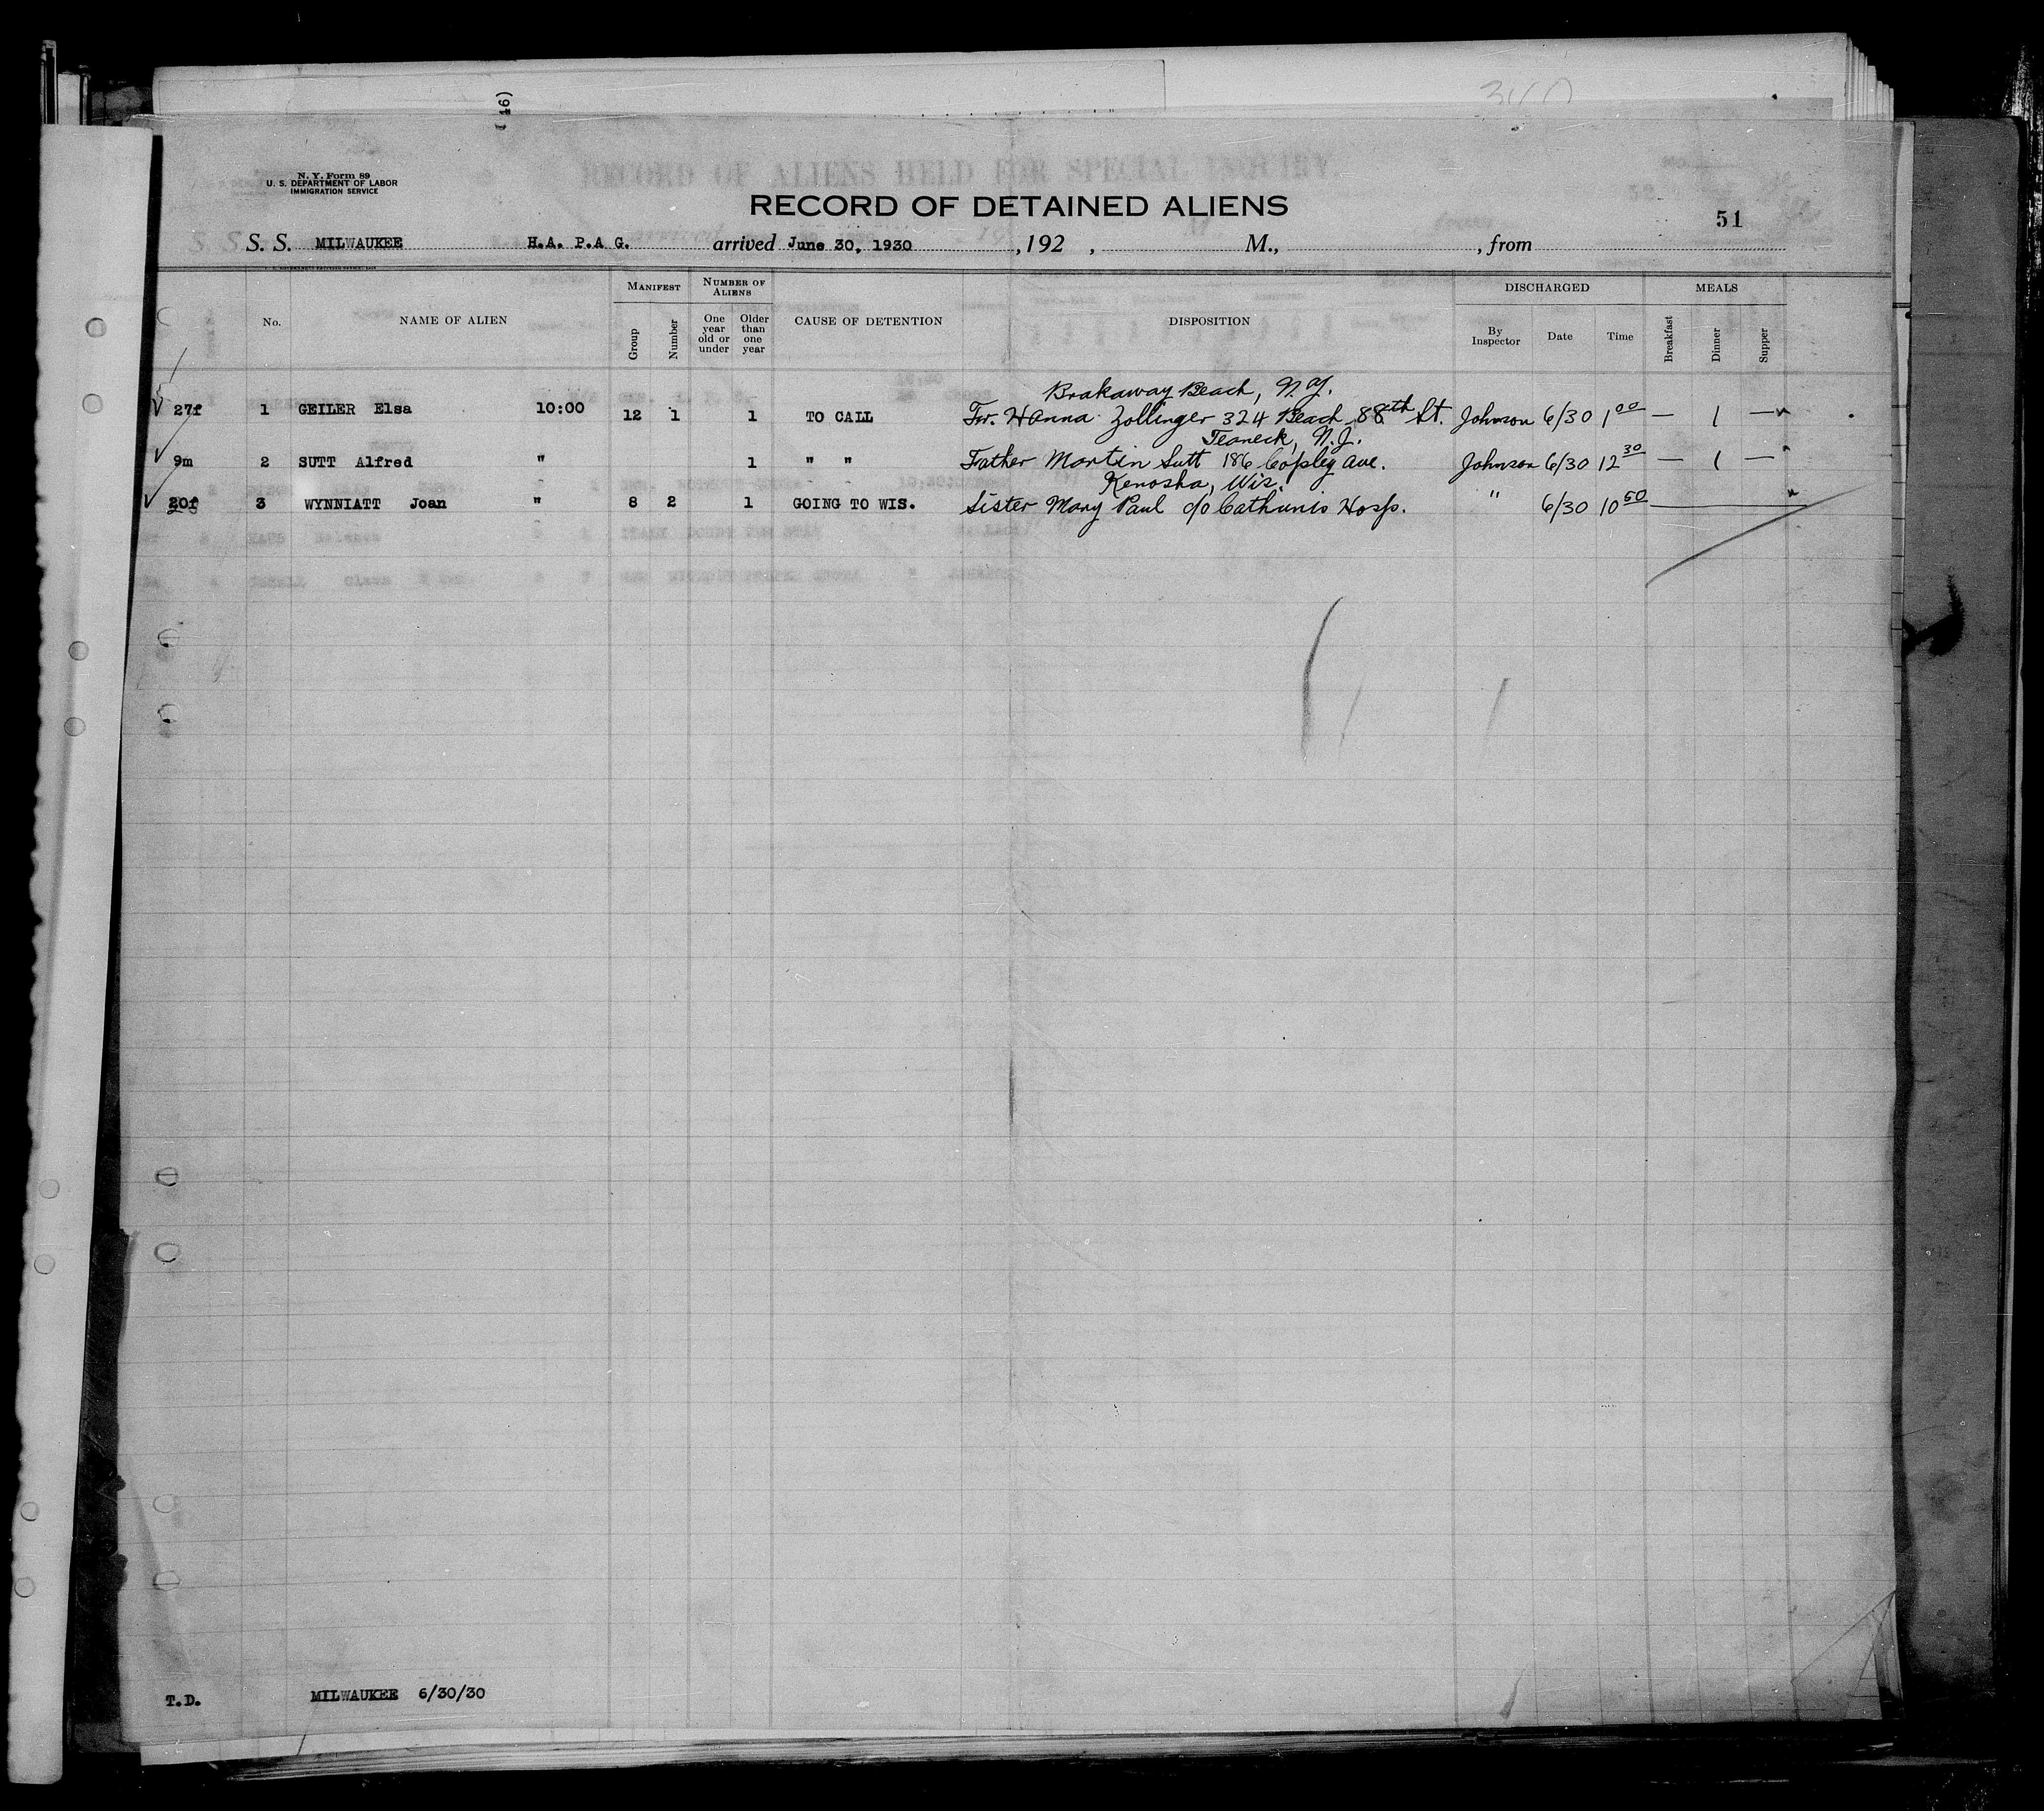 (46)
N. Y. Form 89
U. S. DEPARTMENT OF LABOR
IMMIGRATION SERVICE
RECORD OF ALIENS HELD FOR SPECIAL INQUIRY
RECORD OF DETAINED ALIENS
51
S. S. MILWAUKEE H.A. P.A G. arrived June 30, 1930, 192 , M., , from
No. NAME OF ALIEN MANIFEST Group Number NUMBER OF ALIENS One year old or under Older than one year CAUSE OF DETENTION DISPOSITION DISCHARGED By Inspector Date Time MEALS Breakfast Dinner Supper
Brakaway Beach, N.Y.
27f 1 GEILER Elsa 10:00 12 1 1 TO CALL Fr. Hanna Zollinger 324 Beach 88th St. Johnson 6/30 1 00 — 1 —
Teaneck, N.J.
9m 2 SUTT Alfred " 1 " " Father Martin Sutt 186 Copley Ave. Johnson 6/30 12 30 — 1 —
Kenosha, Wis.
20f 3 WYNNIATT Joan " 8 2 1 GOING TO WIS. Sister Mary Paul c/o Hosp. " 6/30 10 50
T.D. MILWAUKEE 6/30/30